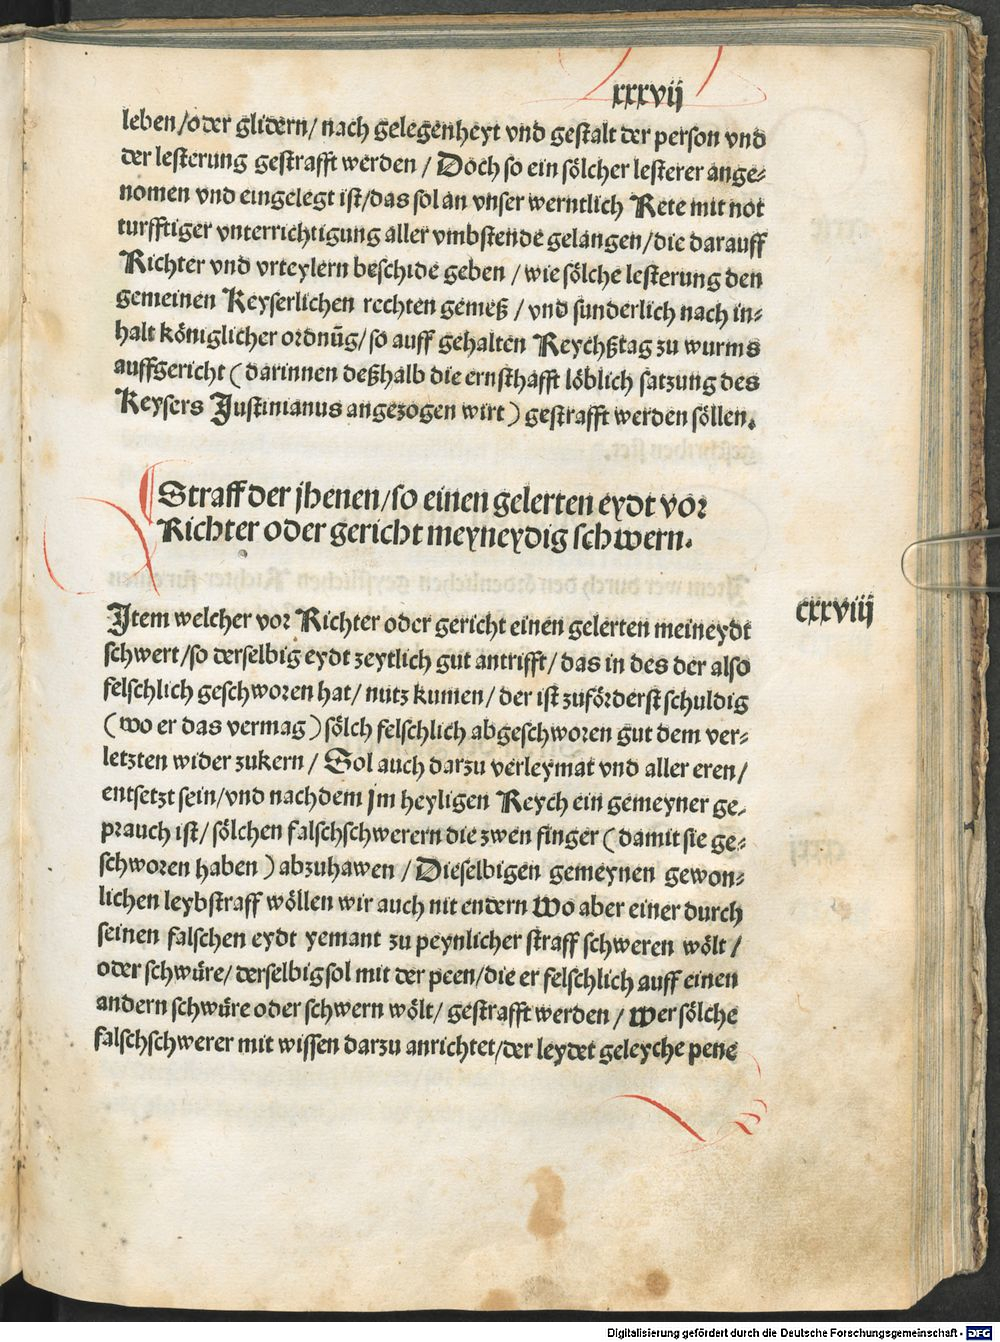 xxxvij
leben/oder glidern/ nach gelegenheyt vnd gestalt der person vnd
der lesterung gestrafft werden / Doch so ein sölcher lesterer ange⸗
nomen vnd eingelegt ist/das sol an vnser werntlich Rete mit not
turfftiger vnterrichtigung aller vmbstende gelangen/die darauff
Richter vnd vrteylern beschide geben / wie sölche lesterung den
gemeinen Keyserlichen rechten gemeß / vnd sunderlich nach in⸗
halt königlicher ordnūg/so auff gehalten Reychßtag zu wurms
auffgericht ( darinnen deßhalb die ernsthafft löblich satzung des
Keysers Justinianus angezogen wirt ) gestrafft werden söllen.
Straff der jhenen/so einen gelerten eydt vor
Richter oder gericht meyneydig schwern.
Item welcher vor Richter oder gericht einen gelerten meineydt
cxxviij
schwert/so derselbig eydt zeytlich gut antrifft/ das in des der also
felschlich geschworen hat/ nutz kumen/ der ist zuförderst schuldig
( wo er das vermag ) sölch felschlich abgeschworen gut dem ver⸗
letzten wider zukern / Sol auch darzu verleymat vnd aller eren/
entsetzt sein/vnd nachdem jm heyligen Reych ein gemeyner ge⸗
prauch ist/ sölchen falschschwerern die zwen finger ( damit sie ge⸗
schworen haben ) abzuhawen / Dieselbigen gemeynen gewon⸗
lichen leybstraff wöllen wir auch nit endern Wo aber einer durch
seinen falschen eydt yemant zu peynlicher straff schweren wölt /
oder schwüre/ derselbig sol mit der peen/die er felschlich auff einen
andern schwüre oder schwern wölt/ gestrafft werden / Wer sölche
falschschwerer mit wissen darzu anrichtet/der leydet geleyche pene
Digitalisierung gefördert durch die Deutsche Forschungsgemeinschaft - DFG